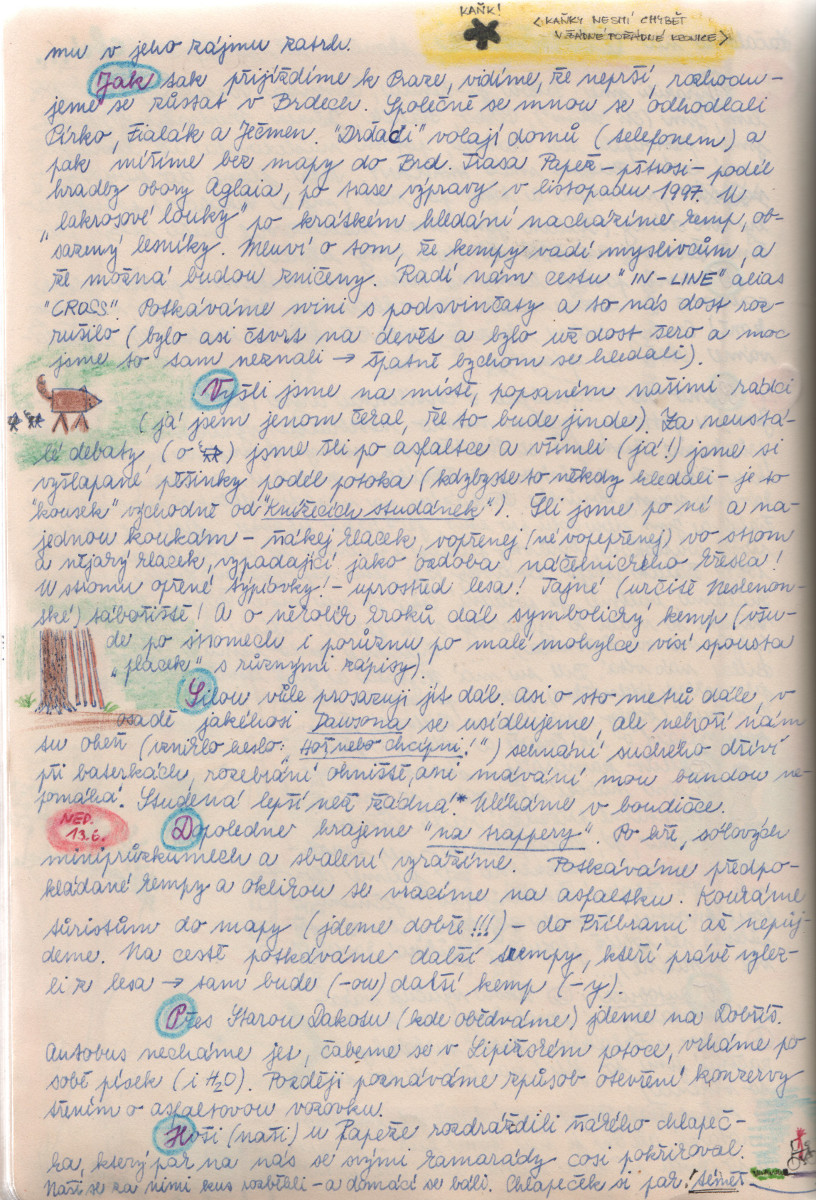 KAŇK!
(KAŇKY NESMÍ CHYBĚT
V ŽÁDNÉ POŘÁDNÉ KRONICE)
mu v jeho zájmu zatrh.
Jak tak přijíždíme k Praze, vidíme, že neprší, rozhodu-
jeme se zůstat v Brdech. Společně se mnou se odhodlali
Círko, Fialák a Ječmen. "Drďáči" volají domů (telefonem) a
pak míříme bez mapy do Brd. Trasa Papež - - podél
hradby obory Aglaia, po trase výpravy v listopadu 1997. U
"lakrosové louky" po krátkém hledání nacházíme kemp, ob-
sazený lesníky. Mluví o tom, že kempy vadí myslivcům, a
že možná budou zničeny. Radí nám cestu "IN-LINE" alias
"CROSS". Potkáváme svini s podsvinčaty a to nás dost roz-
rušilo (bylo asi čtvrt na devět a bylo už dost šero a moc
jsme to tam neznali → špatně bychom se hledali).
Vyšli jsme na místě, popsaném našimi rádci
(já jsem jenom čekal, že to bude jinde). Za neustá-
lé debaty (o ) jsme šli po asfaltce a všimli (já!) jsme si
vyšlapané pěšinky podél potoka (kdybyste to někdy hledali - je to
"kousek" východně od "Knížecích studánek"). Šli jsme po ní a na-
jednou koukám - ňákej placek, vopřenej (né vopepřenej) vo strom
a nějaký placek, vypadající jako ozdoba náčelnického křesla!
U stromu opřené týpíovky! - uprostřed lesa! Tajné (určitě
ské) tábořiště! A o několik kroků dál symbolický kemp (všu-
de po stromech i porůznu po malé mohylce visí spousta
"placek" s různými zápisy).
Silou vůle prosazuji jít dál. Asi o sto metrů dále, v
osadě jakéhosi Dawsona se usídlujeme, ale nehoří nám
tu oheň (vzniklo heslo: "Hoř nebo chcípni!") sehnání suchého dříví
při baterkách, rozebrání ohniště, ani mávání mou bundou ne-
pomáhá. Studená lepší než žádná.* Uléháme v boudičce.
NED.
13.6.
Dopoledne hrajeme "na trappery". Po hře, sólových
miniprůzkumech a sbalení vyrážíme. Potkáváme předpo-
kládané kempy a oklikou se vracíme na asfaltku. Koukáme
túristům do mapy (jdeme dobře!!!) - do Příbrami až nepůj-
deme. Na cestě potkáváme další trempy, kteří právě vylez-
li z lesa → tam bude (-ou) další kemp (-y).
Přes Starou Dakotu (kde obědváme) jdeme na Dobříš.
Autobus necháme jet, čabeme se v Lipižském potoce, vrháme po
sobě písek (i H₂O). Později poznáváme způsob otevření konzervy
třením o asfaltovou vozovku.
Hoši (naši) u Papeže rozdráždili ňákého chlapeč-
ka, který pak na nás se svými kamarády cosi pokřikoval.
Naši se za nimi kus rozběhli - a domácí se báli. Chlapeček si pak! téměř